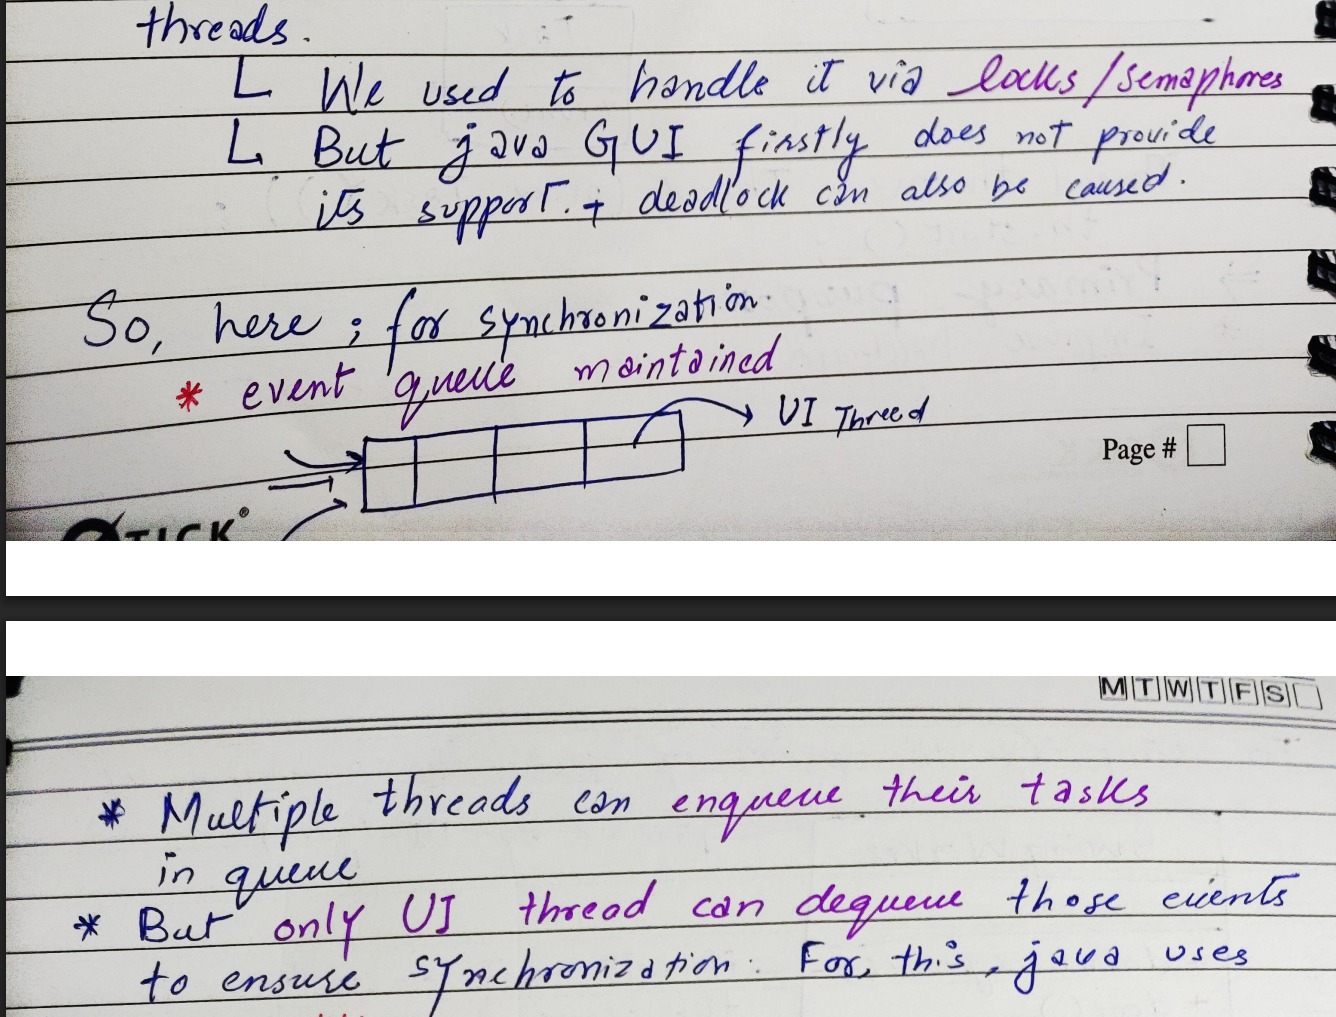 threads.
We used to handle it via locks/semaphores
But java GUI firstly does not provide
its support. + deadlock can also be caused.
So, here ; for synchronization.
* event queue maintained
UI Thread
Page #
TICK®
M T W T F S
* Multiple threads can enqueue their tasks
in queue
* But only UI thread can dequeue those events
to ensure synchronization. For, this, java uses